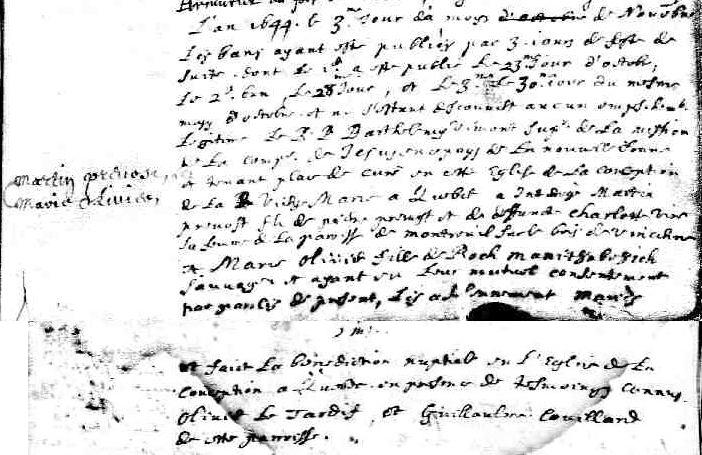 L'an 1644. le 3.me Jour du moys d'octobre de Novēbre
les bans ayant esté publiés par 3. jours de feste de
suite dont le 1er a esté publié le 23me Jour d'octobre,
Le 2d. ban le 28 Jour, et le 3me le 30me jour du mesme
moys d'octobre et ne s'estant descouvert aucun empeschemt.
Legitime Le R. P. Barthelemy Vimont supr. de La mission
de La comp.e de Jesus en ce pays de La nouvelle france
et tenant place de curé en cette Eglise de La conception
de La B Vierge Marie a Quebec a Interrogé Martin
Martin prevost,
Marie Olivier,
prevost fils de pierre prevost et de deffuncte charlotte Vien
sa femme de La paroisse de montreuil sur le bois de vincennes
et Marie Olivier fille de Roch manithabehich
Sauvage et ayant eu Leur mutuel consentement
par paroles de present, Les a solennement mariés
et faict La benediction nuptiale en L'Eglise de La
Conception a Quebec en presence de tesmoings connus
Olivier Le Tardif, et Guillaulme Couillard
de cette parroisse.